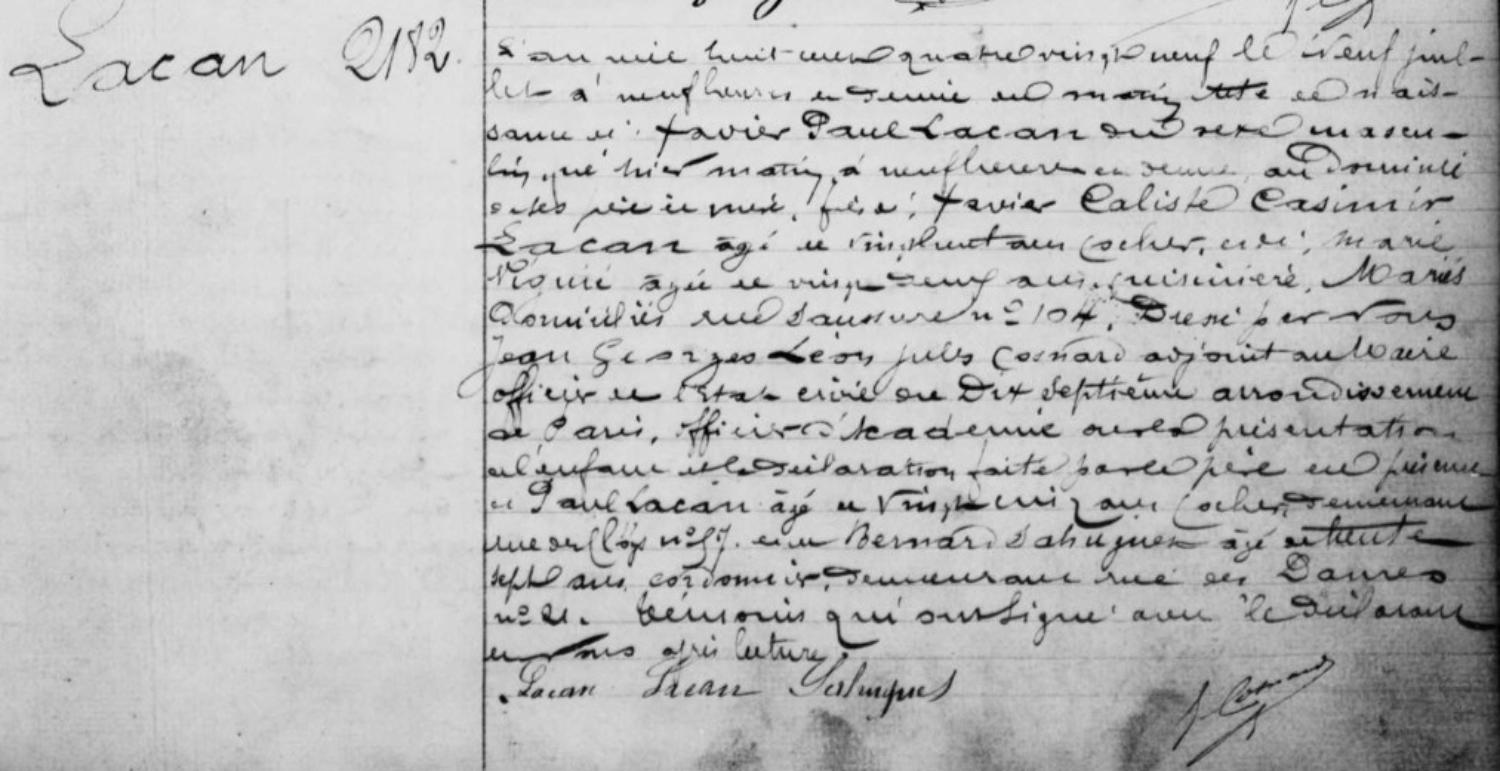 Lacan 2182.
L'an mil huit cent quatre vingt neuf le Neuf juil-
let à neuf heures et demie du matin Acte de nais-
sance de Xavier Paul Lacan du sexe mascu-
lin, né hier matin, à neuf heures et demie, au domicile
de ses père et mère, fils de Xavier Caliste Casimir
Lacan âgé de vingt huit ans cocher, et de Marie
âgée de vingt neuf ans, cuisinière, Mariés
Domiciliés rue Saussure nº 104, Dressé par Nous
Jean Georges Léon Jules Cosnard adjoint au Maire
officier de l'état civil du Dix septième arrondissement
de Paris, officier d'Académie sur la présentation
de l'enfant et la déclaration faite par le père en présence
de Paul Lacan âgé de vingt ans Cocher, demeurant
rue de nº 57. et de Bernard Sahuguet âgé de trente
sept ans, cordonnier, demeurant rue des Dames
nº 21. témoins qui ont signé avec le déclarant
et Nous après lecture.
Lacan Lacan
J Cosnard